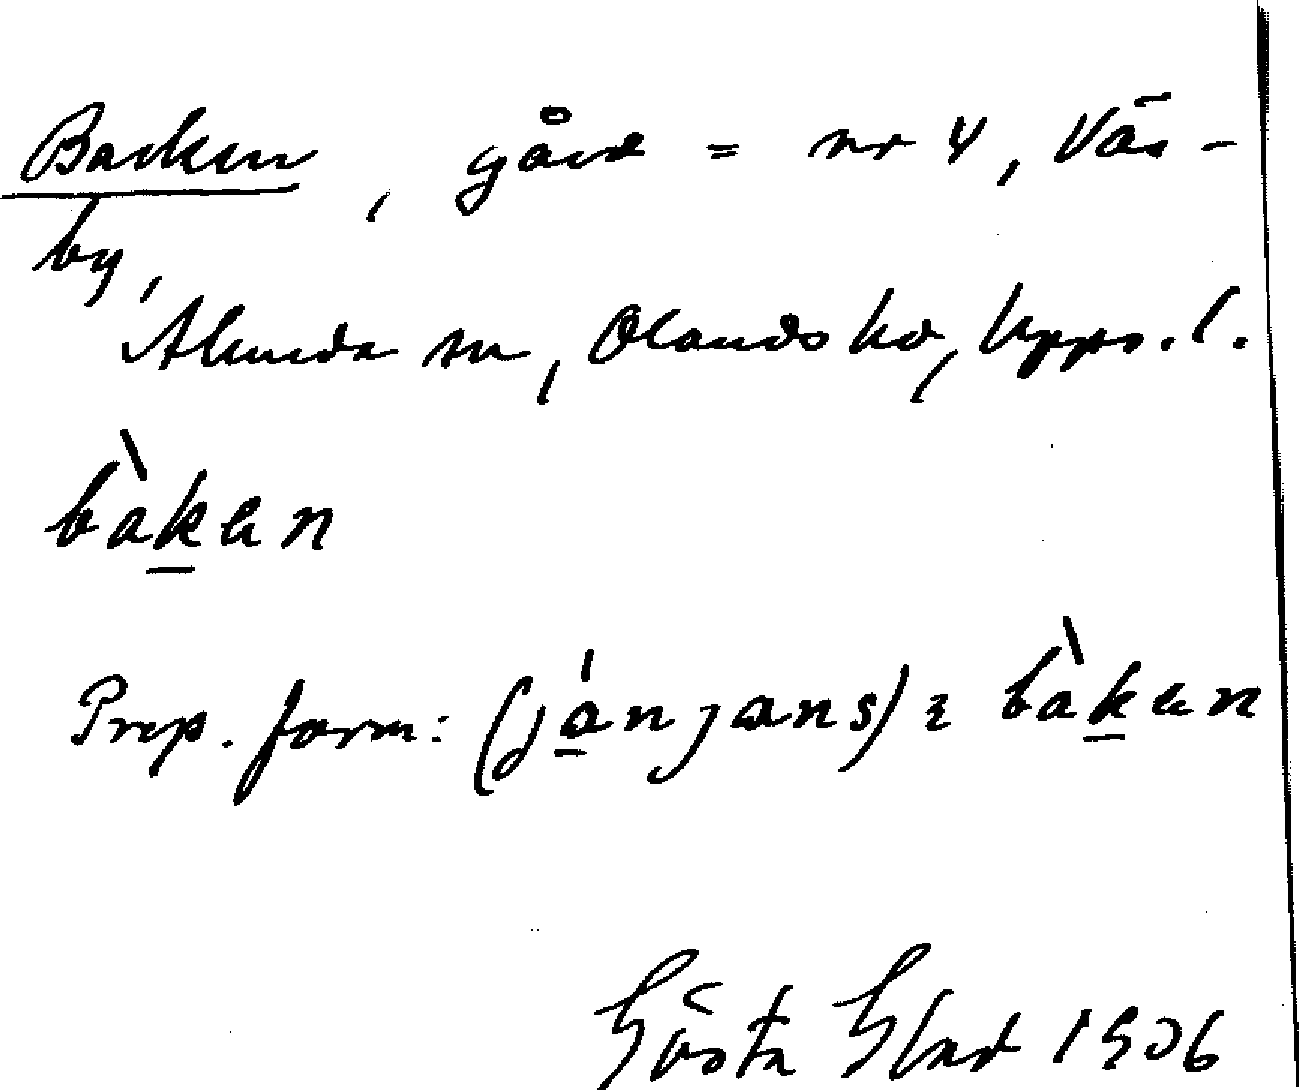 Backen, gård = nr 4, Väs-
by,
Alunda sn, Olands hd, Upps. l.
bàken
Prep. form: (jánjans) i bàken
Gösta Elad 1906